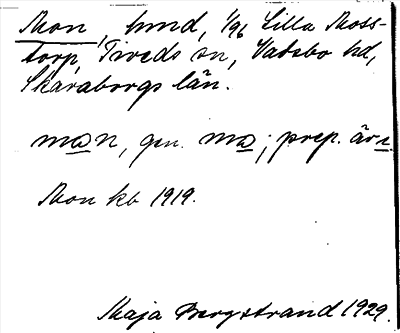 Mon, hmd, 1/96 Lilla Moss-
torp, Tiveds sn, Vadsbo hd,
Skaraborgs län.
man, gen. ma; prep.
Mon kb 1919.
Maja Bergstrand 1929.